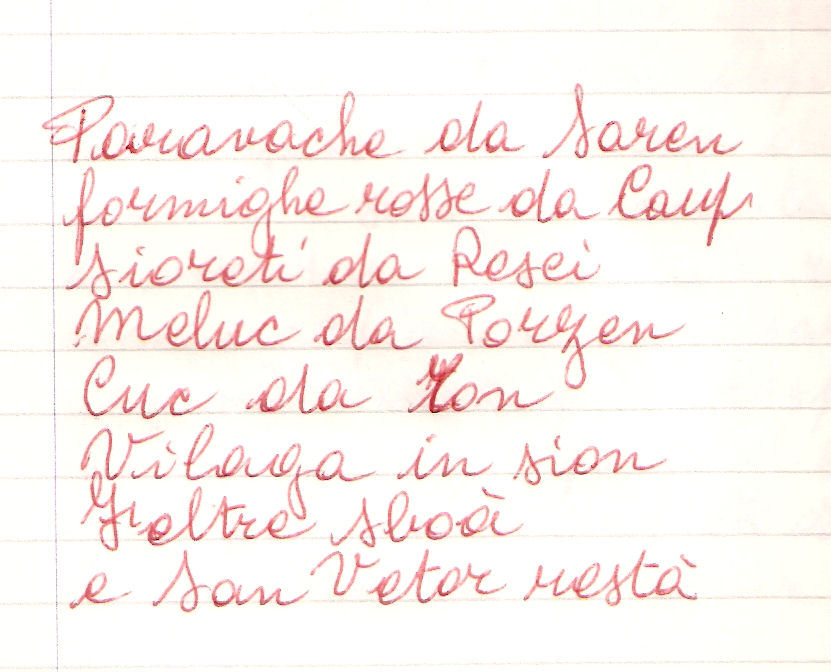 Paravache da Saren
formighe rosse da Caup
sioreti da Resei
Meluc da Porzen
Cuc da
Vilaga in sion
Feltre sboà
e San Vetor restà